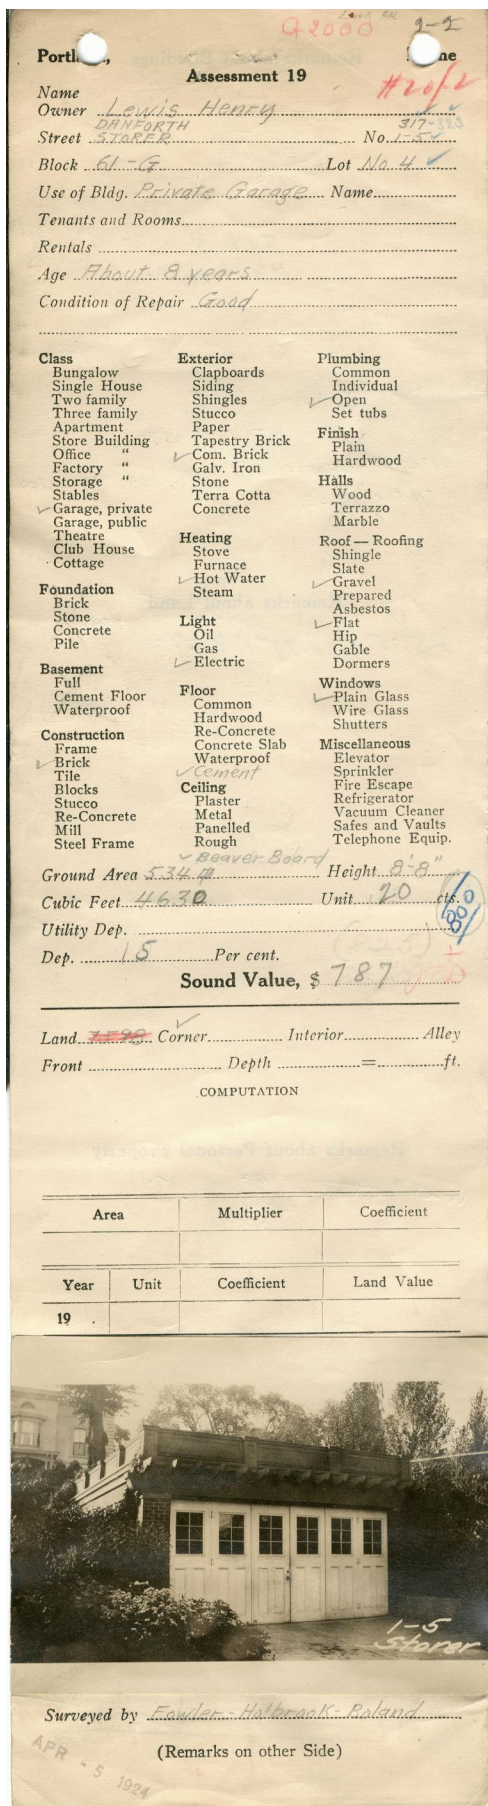 Q2000 2-2
Assessment 19
#2 of 2
Name
Owner Lewis Henry
DANFORTH 317-323
Street STORER No. 1-5
Block 61-G Lot No 4
Use of Bldg. Private Garage Name
Tenants and Rooms
Rentals
Age About 8 years
Condition of Repair Good
Class
Bungalow
Single House
Two family
Three family
Apartment
Store Building
Office "
Factory "
Storage "
Stables
Garage, private
Garage, public
Theatre
Club House
Cottage
Foundation
Brick
Stone
Concrete
Pile
Basement
Full
Cement Floor
Waterproof
Construction
Frame
Brick
Tile
Blocks
Stucco
Re-Concrete
Mill
Steel Frame
Exterior
Clapboards
Siding
Shingles
Stucco
Paper
Tapestry Brick
Com. Brick
Galv. Iron
Stone
Terra Cotta
Concrete
Heating
Stove
Furnace
Hot Water
Steam
Light
Oil
Gas
Electric
Floor
Common
Hardwood
Re-Concrete
Concrete Slab
Waterproof
Cement
Ceiling
Plaster
Metal
Panelled
Rough
Beaver Board
Plumbing
Common
Individual
Open
Set tubs
Finish
Plain
Hardwood
Halls
Wood
Terrazzo
Marble
Roof — Roofing
Shingle
Slate
Gravel
Prepared
Asbestos
Flat
Hip
Gable
Dormers
Windows
Plain Glass
Wire Glass
Shutters
Miscellaneous
Elevator
Sprinkler
Fire Escape
Refrigerator
Vacuum Cleaner
Safes and Vaults
Telephone Equip.
Ground Area 534 Height 8'-8"
Cubic Feet 4630 Unit 20 cts.
800
Utility Dep.
Dep. 15 Per cent.
Sound Value, $ 787
Land Corner Interior Alley
Front Depth = ft.
COMPUTATION
Area Multiplier Coefficient
Year Unit Coefficient Land Value
19
1-5
Storer
Surveyed by Fowler-Holbrook-Roland
(Remarks on other Side)
APR - 5 1924